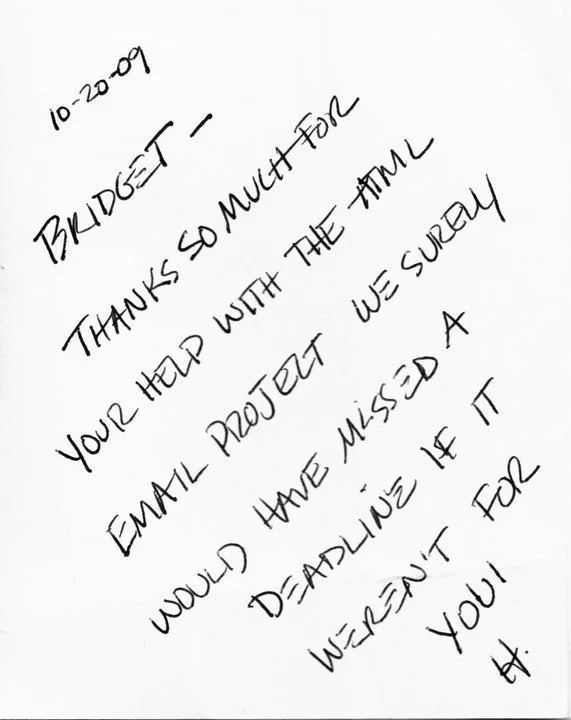 10-20-09
BRIDGET -
THANKS SO MUCH FOR
YOUR HELP WITH THE HTML
EMAIL PROJECT WE SURELY
WOULD HAVE MISSED A
DEADLINE IF IT
WEREN'T FOR
YOU!
H.